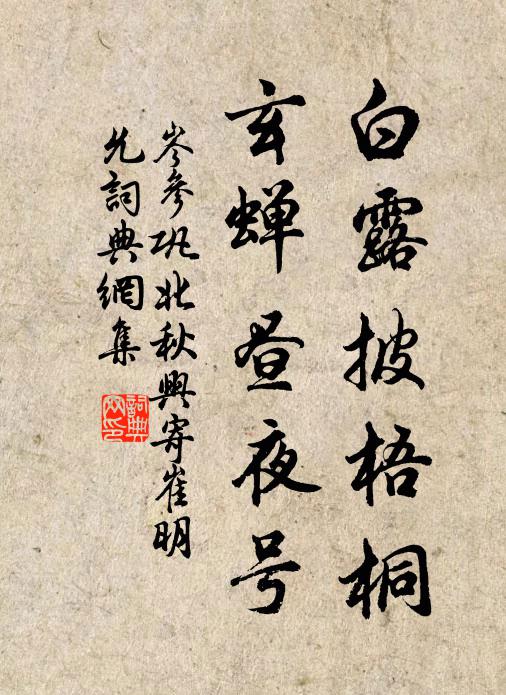 白露披梧桐
玄蝉昼夜号
岑参巩北秋興寄崔明
允詞典網集
詞典
网印